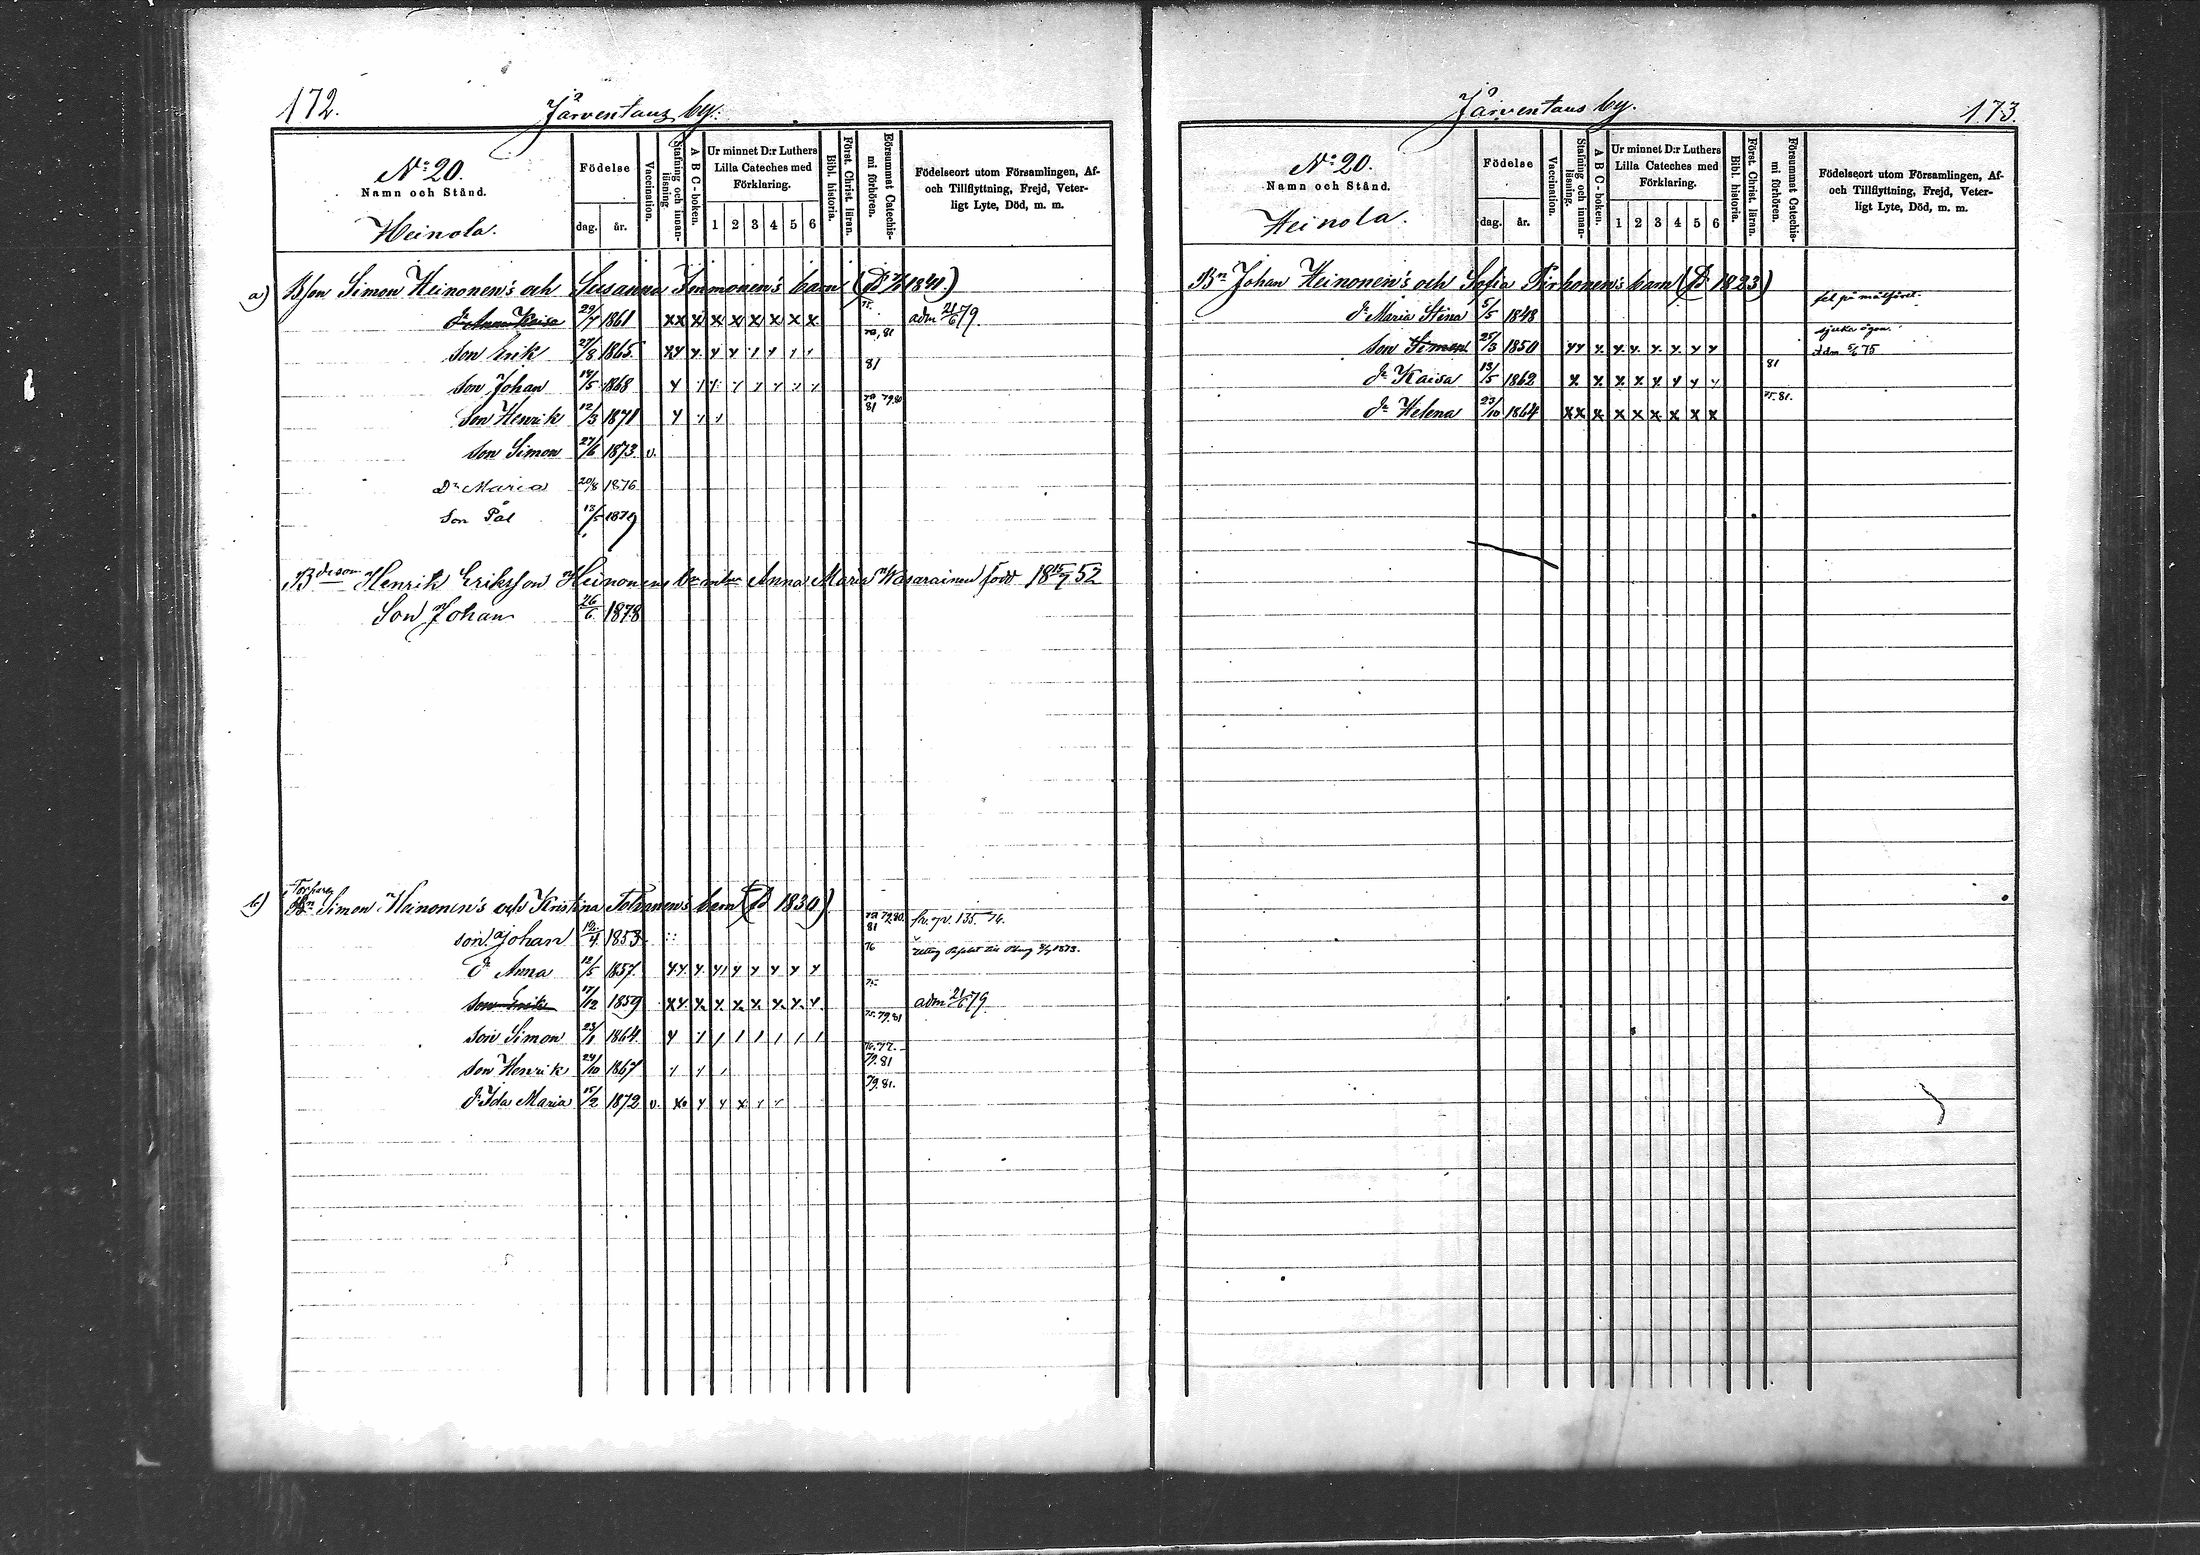 172.
Järventaus by.
No 20.
Namn och Stånd.
Heinola.
Födelse
dag.
år.
Vaccination.
Stafning och innan-
läsning
A B C-boken.
Ur minnet D:r Luthers
Lilla Cateches med
Förklaring.
1 2 3 4 5 6
Bibl. historia.
Först. Christ. läran.
Försummat Catechis-
mi förhören.
Födelseort utom Församlingen, Af-
och Tillflyttning, Frejd, Veter-
ligt Lyte, Död, m. m.
a) Bson Simon Heinonen's och Susanna Immonen's barn 1841.)
dr Anna Kaisa 29/7 1861 xx x x x x x x x 75. adm 21/6 79.
Son Erik 27/8 1865 81
Son Johan 14/5 1868 81
Son Henrik 12/3 1871 79.80 81
Son Simon 27/6 1873 v.
Dr Maria 20/8 1876
Son Pål 13/5 1879
Bdeson Henrik Eriksson Heinonens Anna Maria Wasarainen född 18 15/7 52
Son Johan 26/6 1878
b) Torpare
Simon Heinonen's och Kristina Tolvanen's barn (fd 1830)
son Johan 12/4 1853 79.80. 81 135. 76.
dr Anna 12/5 1857 76
son Erik 17/12 1859 xx x x x x x x x 75. adm 21/6 79
son Simon 23/1 1864 75. 79. 81
son Henrik 24/10 1867 76. 77. 79. 81
dr Ida Maria 15/2 1872 v. 79. 81.
Järventaus by.
173.
No 20.
Namn och Stånd.
Heinola.
Födelse
dag.
år.
Vaccination.
Stafning och innan-
läsning.
A B C-boken.
Ur minnet D:r Luthers
Lilla Cateches med
Förklaring.
1 2 3 4 5 6
Bibl. historia.
Först. Christ. läran.
Försummat Catechis-
mi förhören.
Födelseort utom Församlingen, Af-
och Tillflyttning, Frejd, Veter-
ligt Lyte, Död, m. m.
Bn Johan Heinonen's och Sofia Pirhonen's barn (fd 1823)
dr Maria Stina 5/5 1848 fel på målföret.
son Simon 25/3 1850 sjuka ögon. Adm 5/6 75
dr Kaisa 13/5 1862 x x x x x 81
dr Helena 23/10 1864 xx x x x x x x x 75. 81.